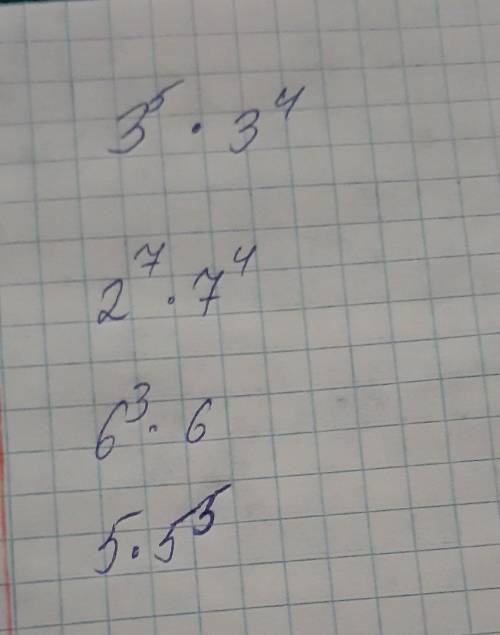 3⁵ · 3⁴
2⁷ · 7⁴
6³ · 6
5 · 5⁵